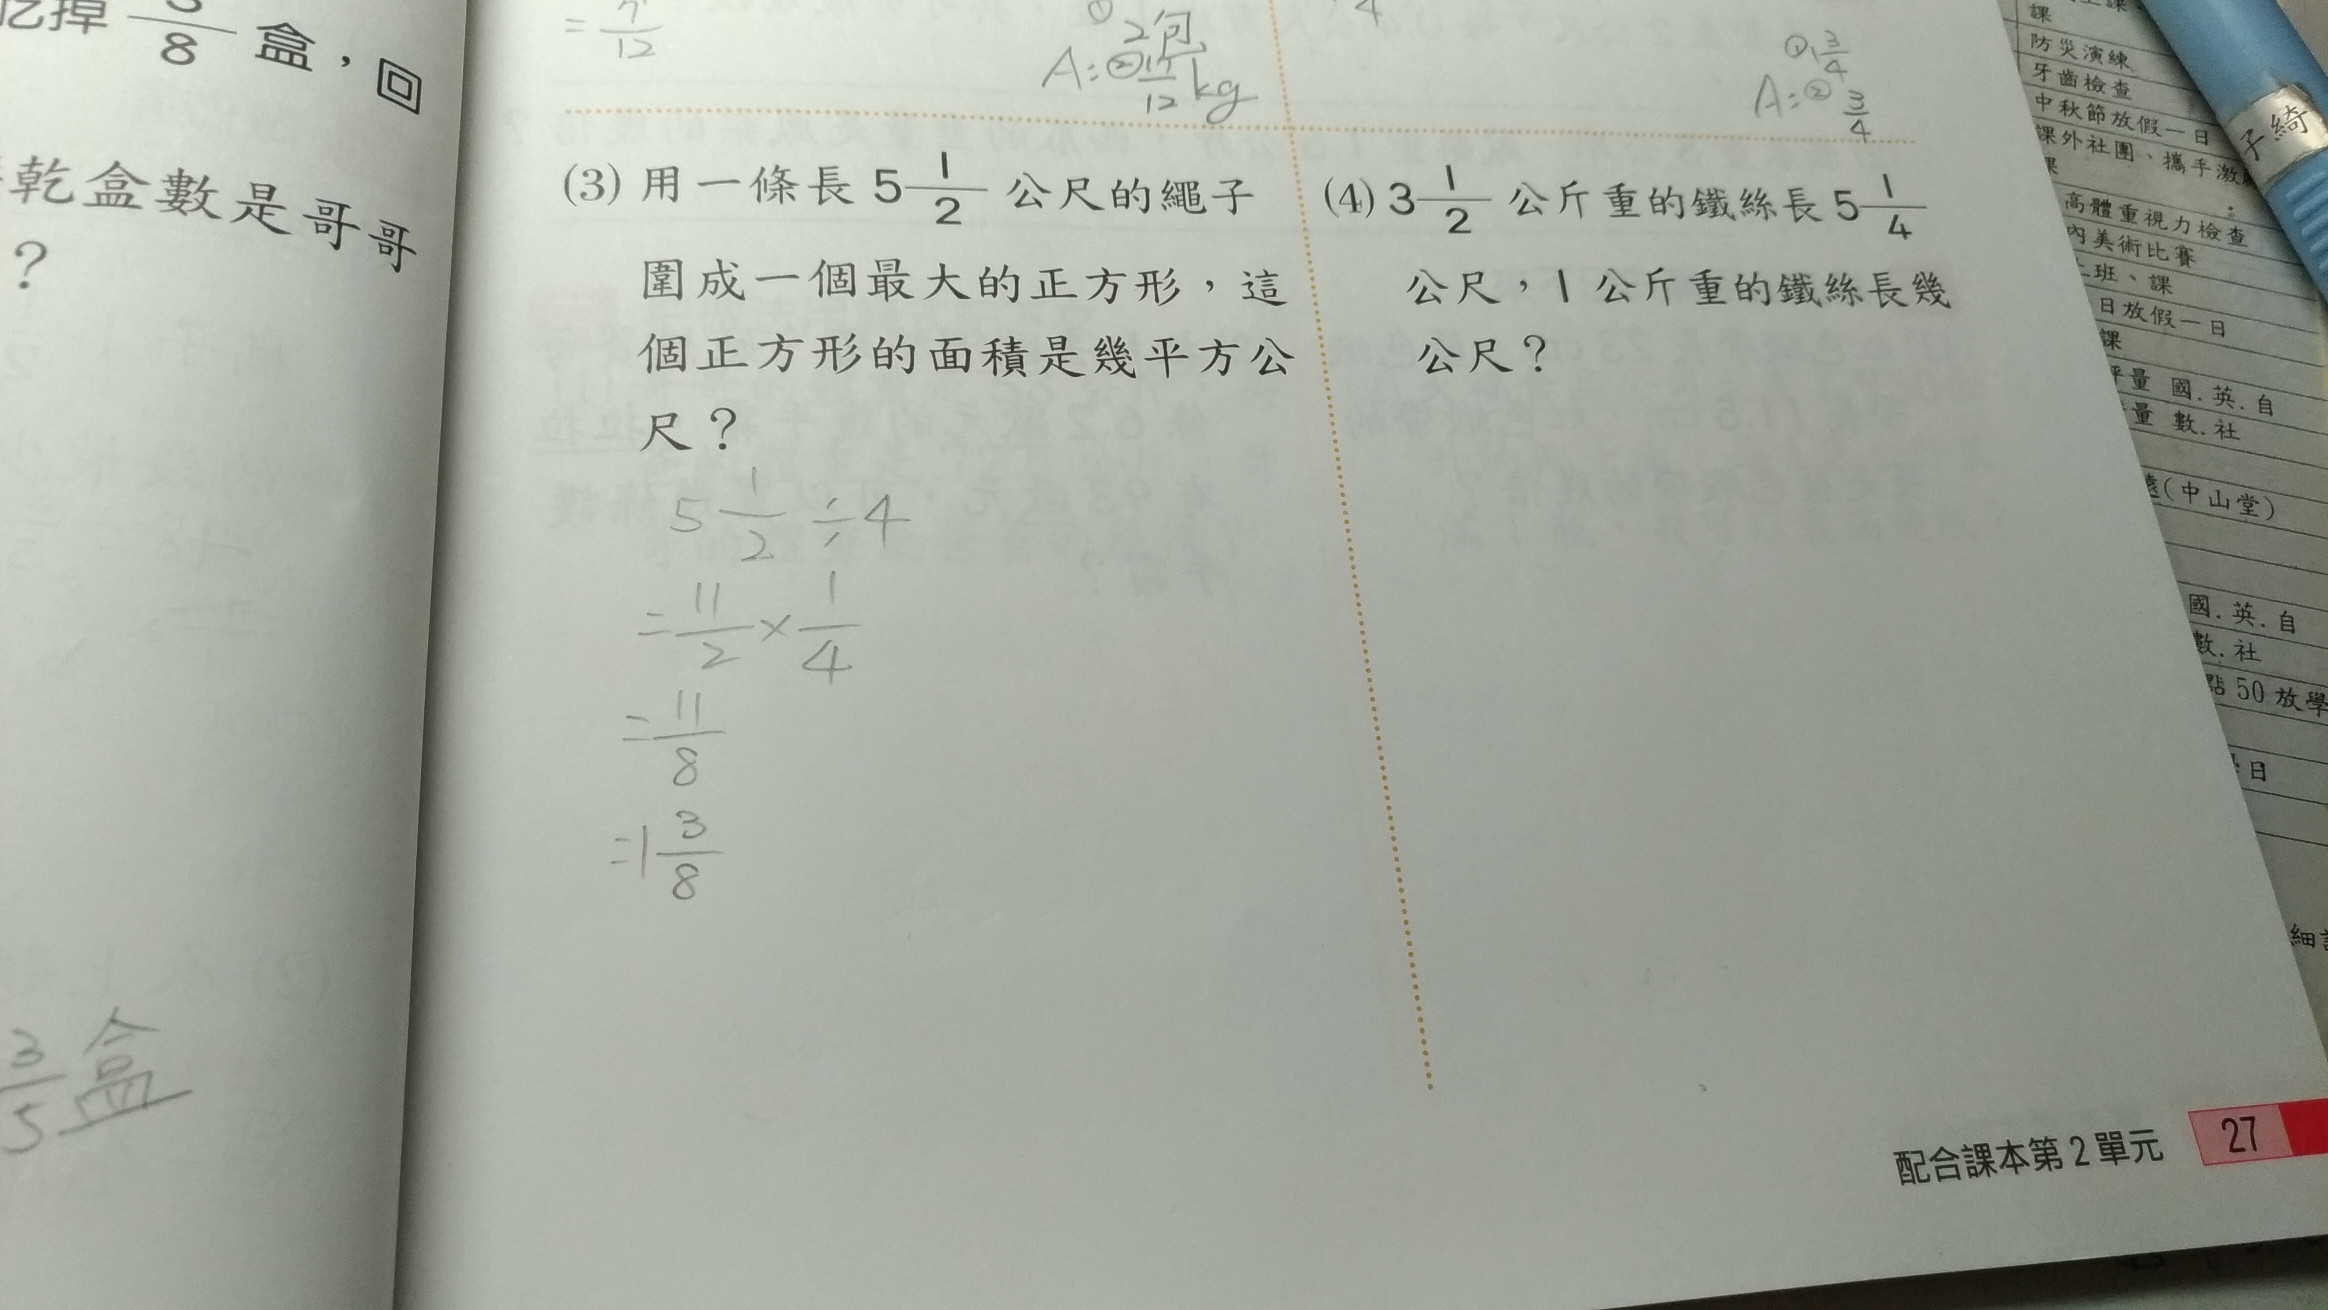 8 盒，回
乾盒數是哥哥
？
3/5 盒
= 12
① 2包
A:② 12 kg
4
① 1 3/4
A:② 3/4
(3) 用一條長 5 1/2 公尺的繩子
圍成一個最大的正方形，這
個正方形的面積是幾平方公
尺？
5 1/2 ÷4
= 11/2 × 1/4
= 11/8
=1 3/8
(4) 3 1/2 公斤重的鐵絲長 5 1/4
公尺，1 公斤重的鐵絲長幾
公尺？
配合課本第 2 單元 27
子綺
課
防災演練
牙齒檢查
中秋節放假一日
課外社團、攜手激
課
高體重視力檢查
內美術比賽
班、課
日放假一日
課
評量 國.英.自
量 數.社
(中山堂)
國.英.自
數.社
點 50 放學
日
細